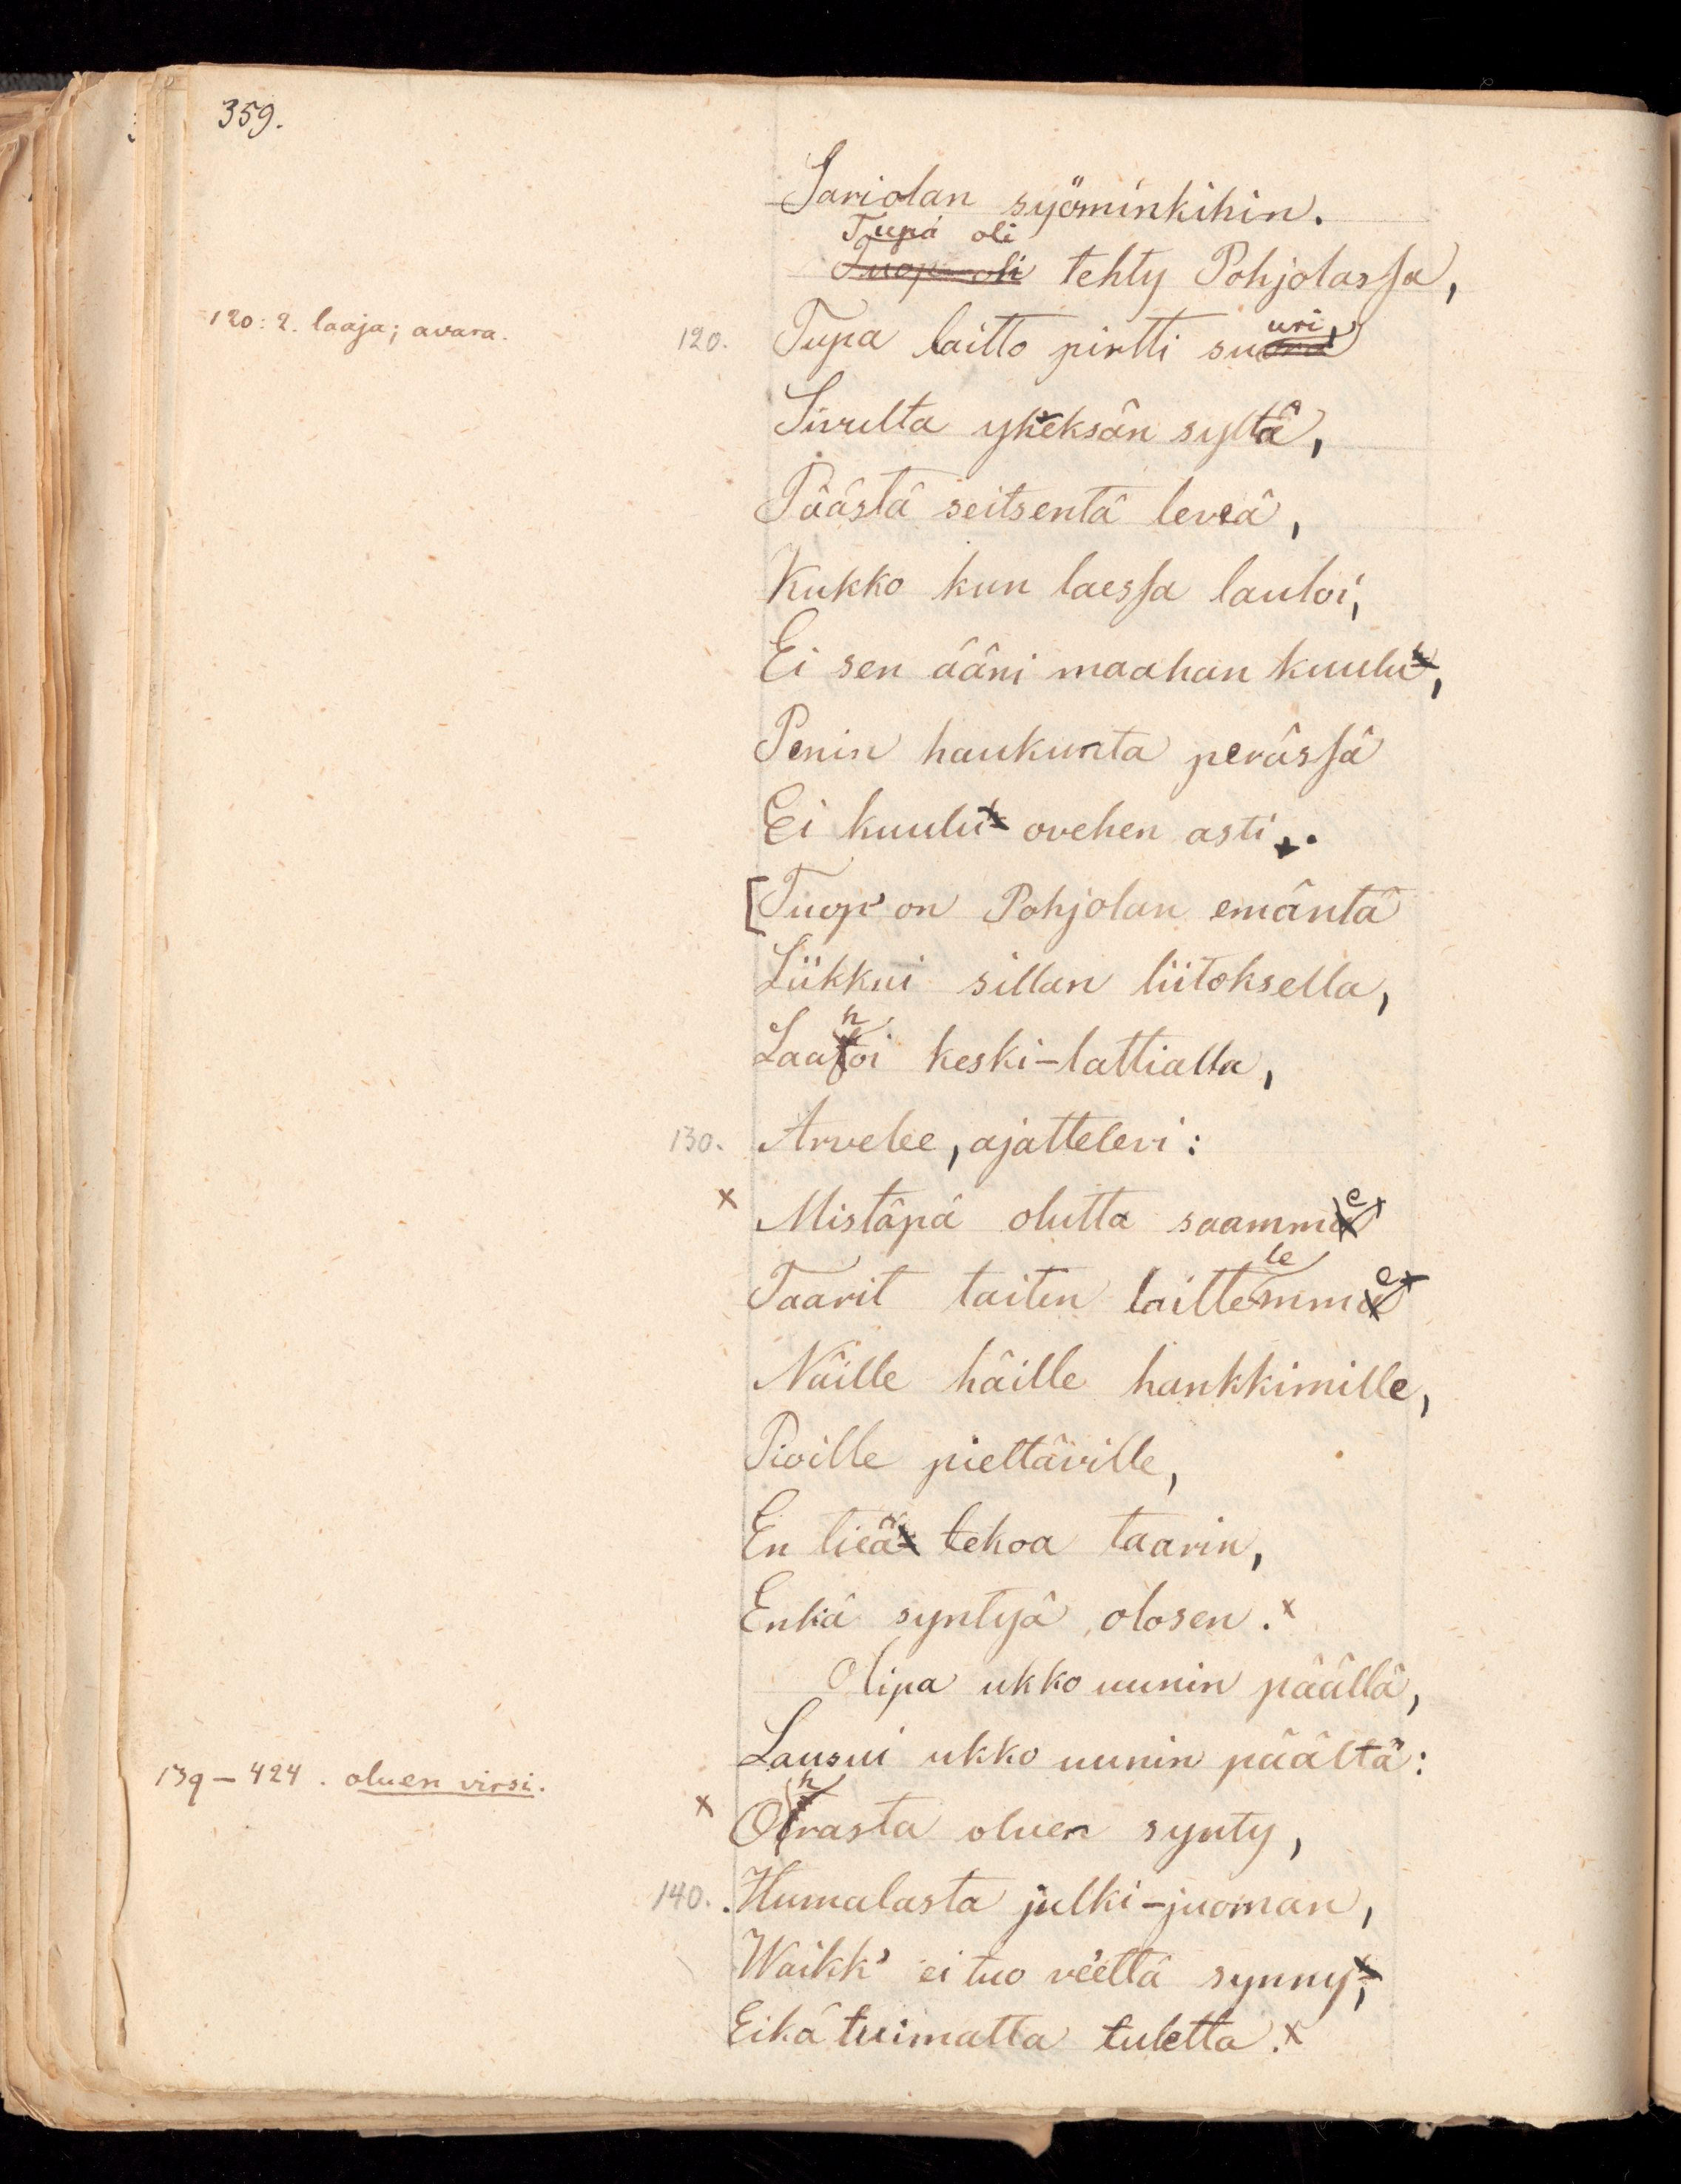 359.
Sariolan syöminkihin.
Tupa oli
Tuop oli tehty Pohjolassa,
120: 2. laaja; avara.
120. Tupa laitto pirtti suuri,
Sivulta yheksän syltä,
Päästä seitsentä leveä,
Kukko kun laessa lauloi,
Ei sen ääni maahan kuulu,
Penin haukunta perässä
Ei kuulu ovehen asti.
[Tuop' on Pohjolan emäntä
Liikkui sillan liitoksella,
Laahoi keski-lattialla,
130. Arvelee, ajattelevi:
x Mistäpä olutta saamme
Taarit taiten laittelemme
Näille häille hankkimille,
Pioille piettäville,
En tieä tekoa taarin,
Enkä syntyä olosen. x
Olipa ukko uunin päällä,
Lausui ukko uunin päältä:
139-424. oluen virsi.
x Ohrasta oluen synty,
140. Humalasta julki-juoman,
Waikk' ei tuo veettä synny,
Eikä tuimatta tuletta. x